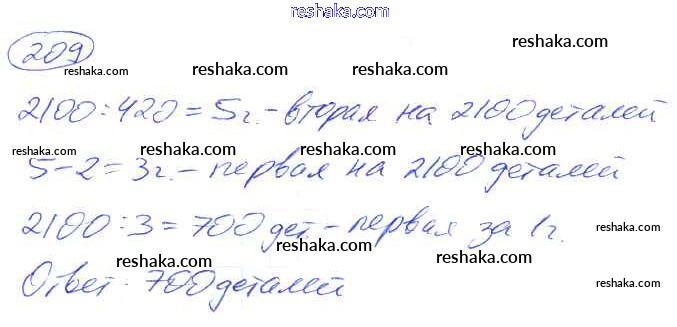 reshaka.com
209
reshaka.com reshaka.com reshaka.com reshaka.com
2100:420=5г.-вторая на 2100 деталей
reshaka.com reshaka.com reshaka.com reshaka.com
5-2=3г.-первая на 2100 деталей
2100:3=700 дет-первая за 1г.
reshaka.com reshaka.com reshaka.com
Ответ. 700 деталей
reshaka.com